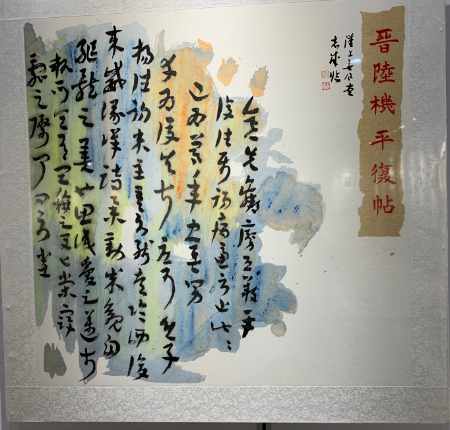 晉陸機平復帖
彥先羸瘵恐難平
復往屬初病慮不止此〻
已為慶承使唯男
幸為復失前憂耳吳子
楊往初來主吾不能盡臨西復
來威儀詳跱舉動成觀自
軀體之美也思識量之邁前
執所恒有宜稱之夏伯榮寇
亂之際聞問不悉